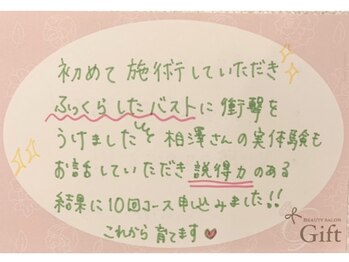 初めて施術していただき
ふっくらしたバストに衝撃を
うけました✨と相澤さんの実体験も
お話していただき説得力のある
結果に10回コース申込みました!!
これから育てます♥
BEAUTY SALON
Gift